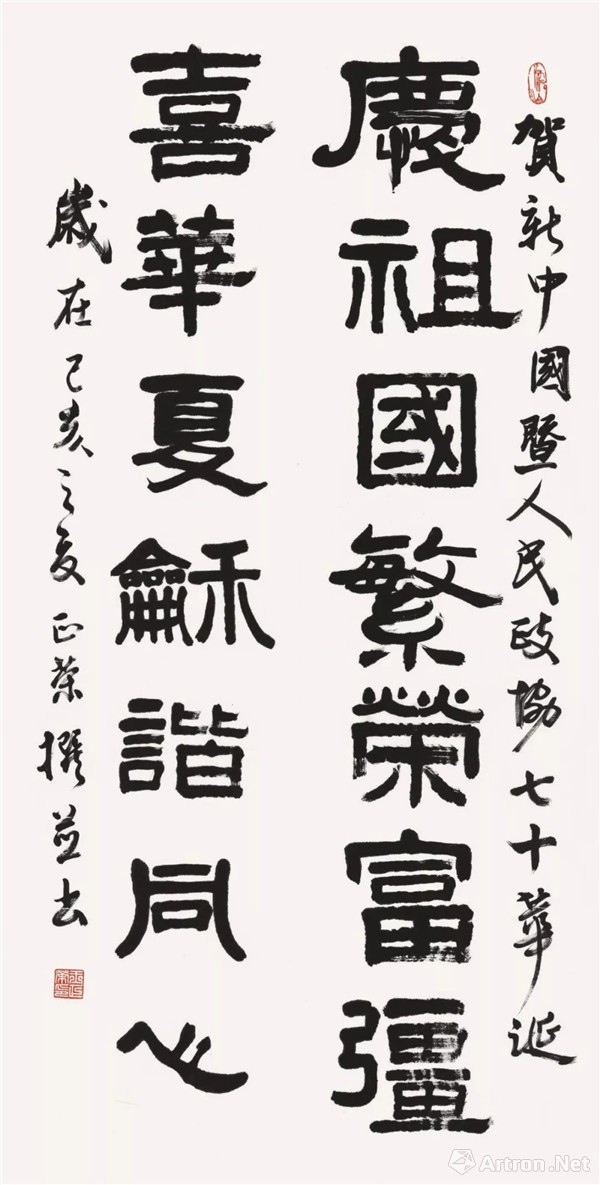 賀新中國暨人民政協七十華誕
慶祖國繁榮富彊
喜華夏龢諧同心
歲在己亥之夏正榮撰并書
Artron.Net